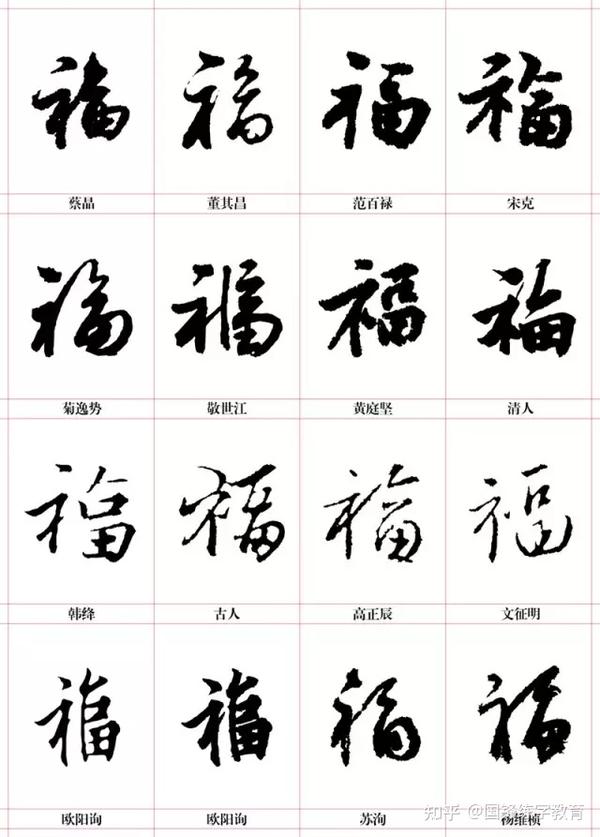 福 福 福 福
蔡品 董其昌 范百禄 宋克
福 福 福 福
菊逸势 敬世江 黄庭坚 清人
福 福 福 福
韩绛 古人 高正辰 文征明
福 福 福 福
欧阳询 欧阳询 苏洵 杨维桢
知乎 @国锋练字教育